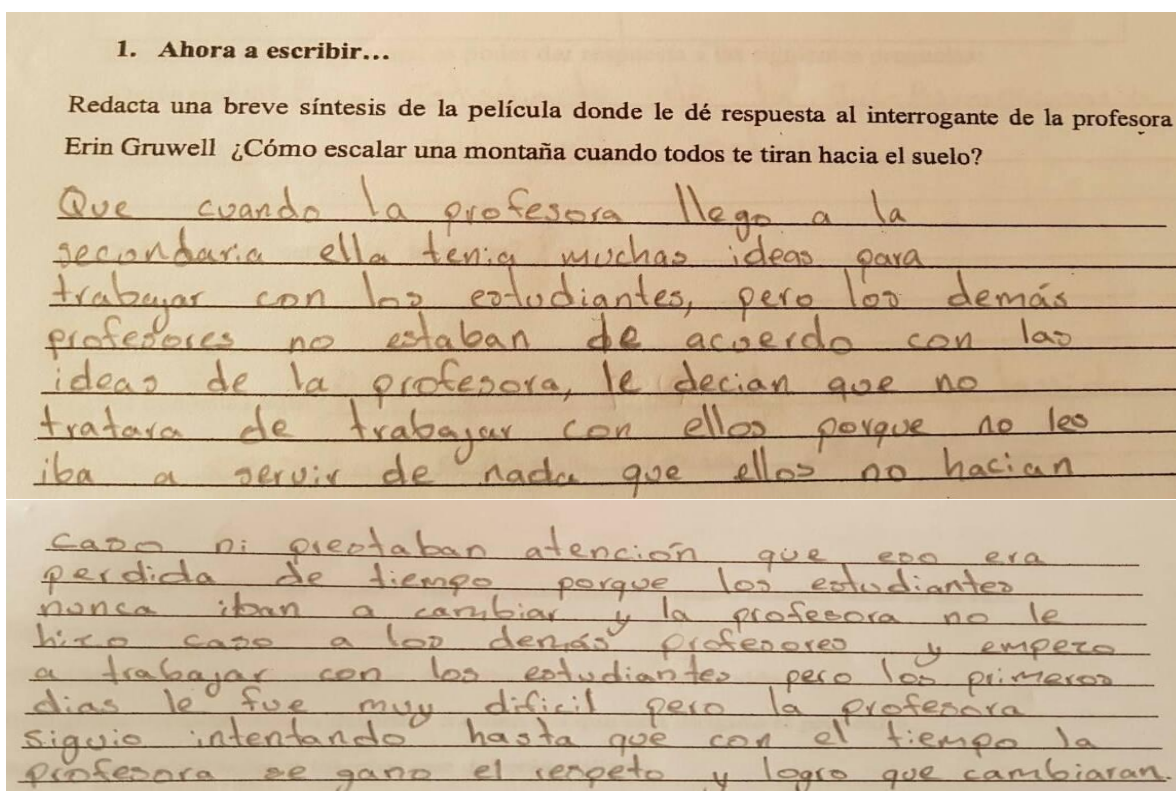 1. Ahora a escribir…
Redacta una breve síntesis de la película donde le dé respuesta al interrogante de la profesora
Erin Gruwell ¿Cómo escalar una montaña cuando todos te tiran hacia el suelo?
Que cuando la profesora llego a la
secundaria ella tenia muchas ideas para
trabajar con los estudiantes, pero los demás
profesores no estaban de acuerdo con las
ideas de la profesora, le decian que no
tratara de trabajar con ellos porque no les
iba a servir de nada que ellos no hacian
caso ni prestaban atención que eso era
perdida de tiempo porque los estudiantes
nunca iban a cambiar y la profesora no le
hizo caso a los demás profesores y empezo
a trabajar con los estudiantes pero los primeros
dias le fue muy dificil pero la profesora
siguio intentando hasta que con el tiempo la
profesora se gano el respeto y logro que cambiaran.